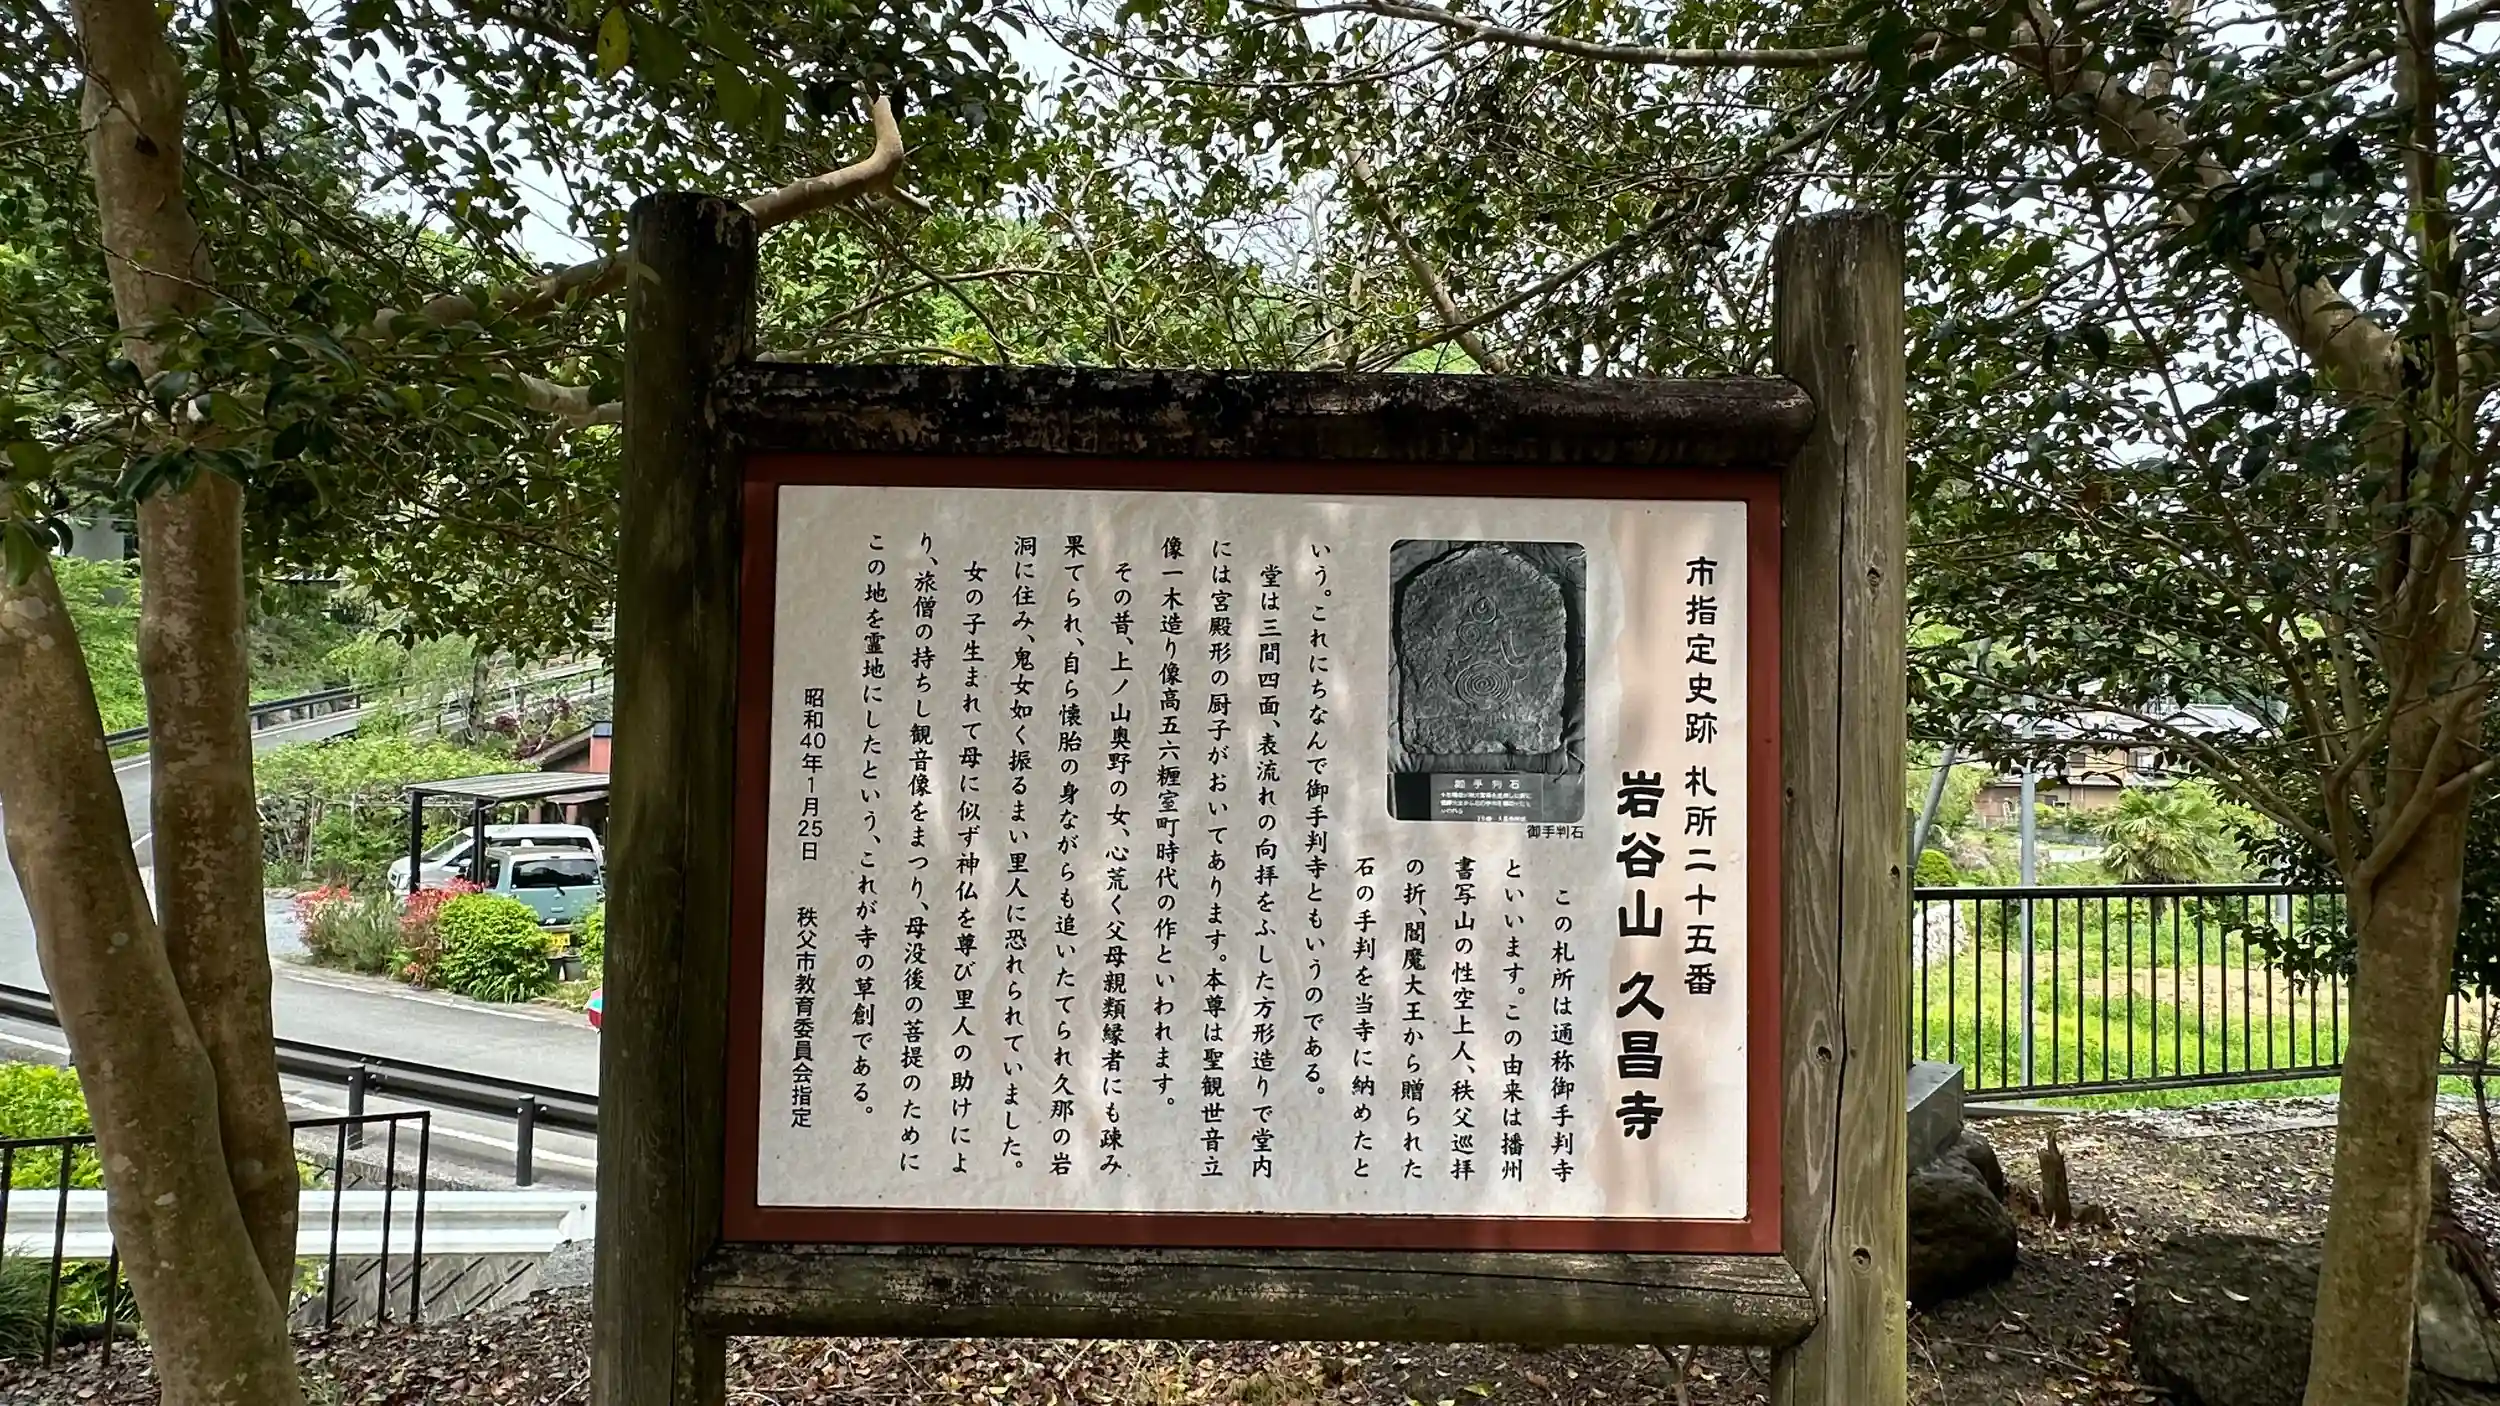 市指定史跡 札所二十五番
岩谷山 久昌寺
この札所は通称御手判寺
といいます。この由来は播州
書写山の性空上人、秩父巡拝
の折、閻魔大王から贈られた
石の手判を当寺に納めたと
いう。これにちなんで御手判寺ともいうのである。
堂は三間四面、表流れの向拝をふした方形造りで堂内
には宮殿形の厨子がおいてあります。本尊は聖観世音立
像一木造り像高五六糎室町時代の作といわれます。
その昔、上ノ山奥野の女、心荒く父母親類縁者にも疎み
果てられ、自ら懐胎の身ながらも追いたてられ久那の岩
洞に住み、鬼女如く振るまい里人に恐れられていました。
女の子生まれて母に似ず神仏を尊び里人の助けによ
り、旅僧の持ちし観音像をまつり、母没後の菩提のために
この地を霊地にしたという、これが寺の草創である。
昭和40年1月25日 秩父市教育委員会指定
御手判石
御手判石